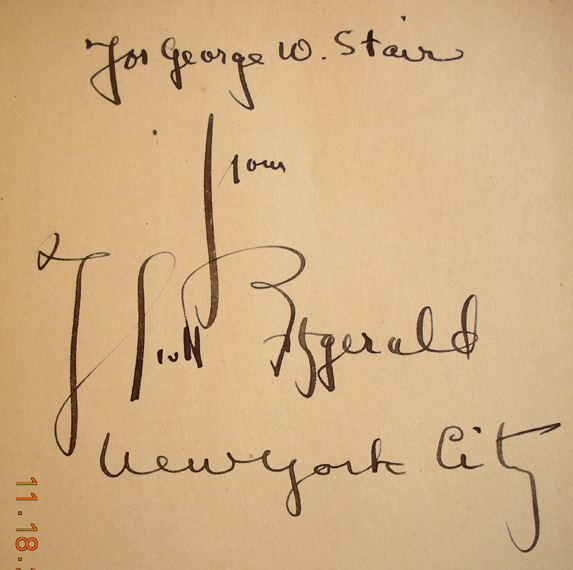 For George W. Stair
from
F Scott Fitzgerald
New York City
11.18.